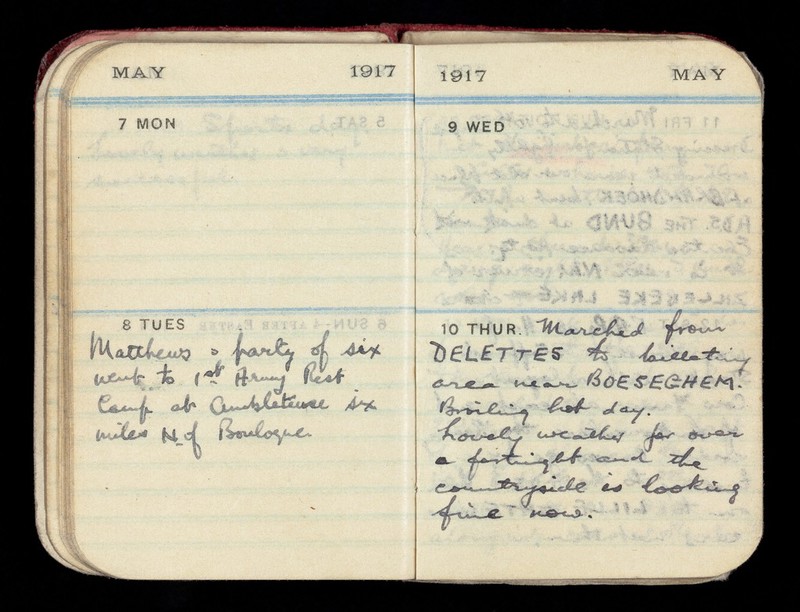 MAY 1917
7 MON
8 TUES
Matthews & party of six
went to 1st Army Rest
Camp at Ambleteuse six
miles N. of Boulogne.
1917 MAY
9 WED
10 THUR. Marched from
DELETTES to billeting
area near BOESEGHEM.
Broiling hot day.
Lovely weather for over
a fortnight and the
countryside is looking
fine now.